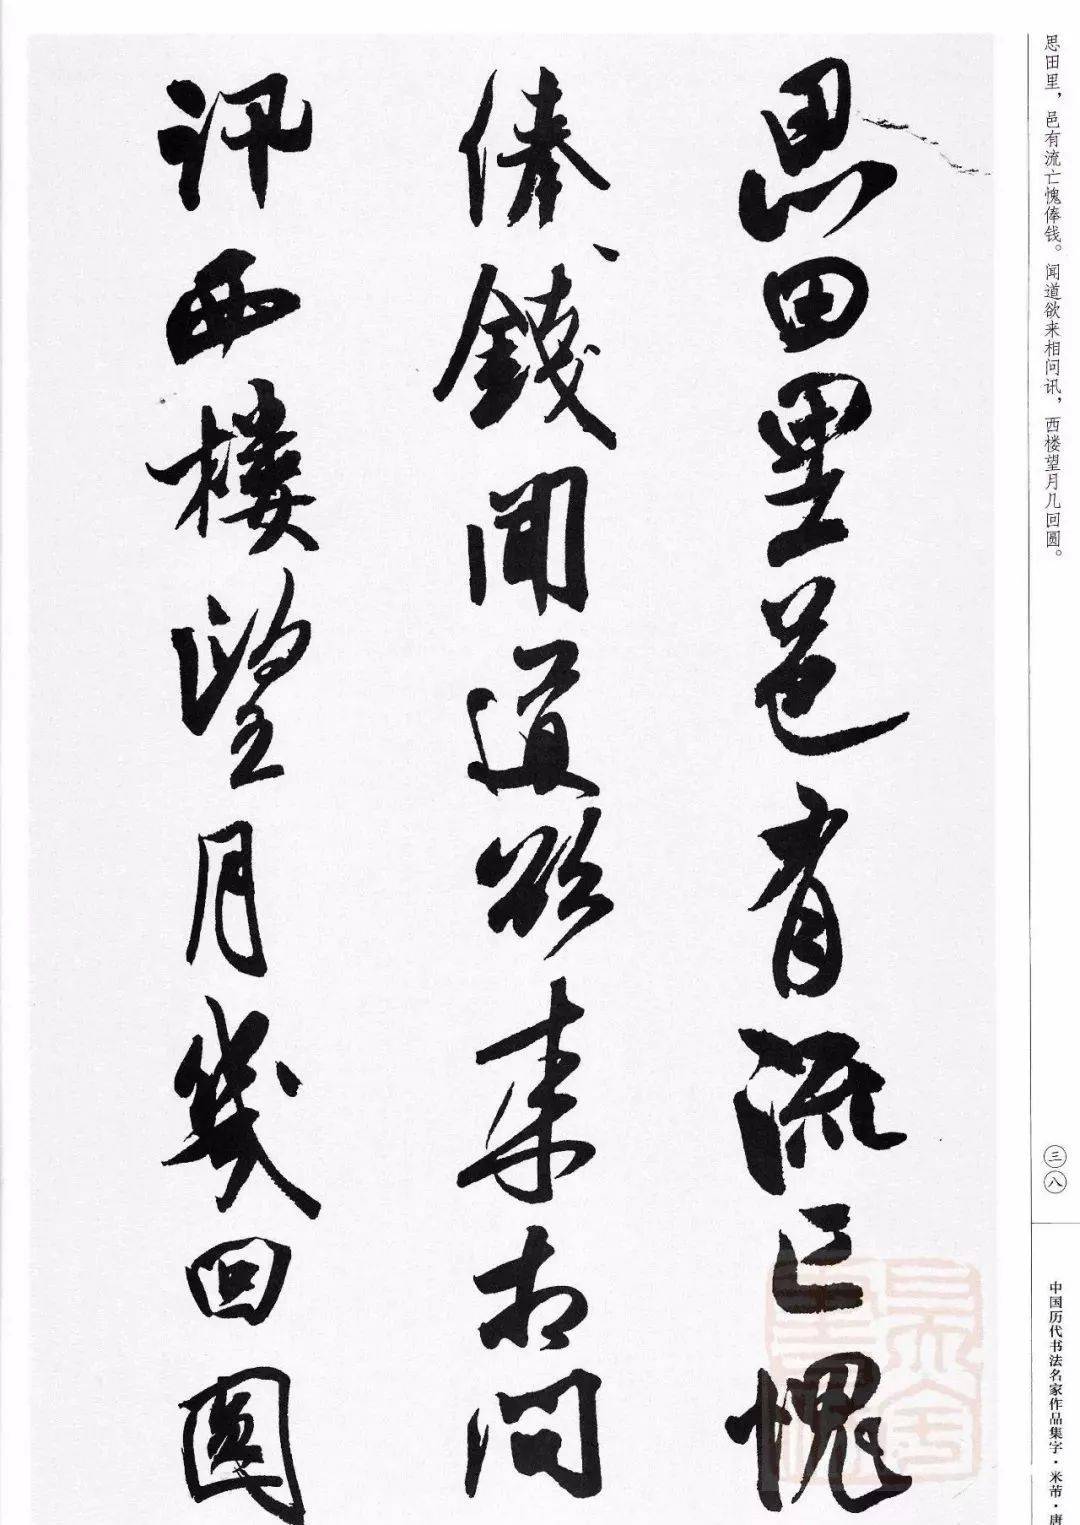 思田里邑有流亡愧
俸錢聞道欲来相問
訊西樓望月幾回圓
思田里，邑有流亡愧俸钱。闻道欲来相问讯，西楼望月几回圆。
三八
中国历代书法名家作品集字·米芾·唐